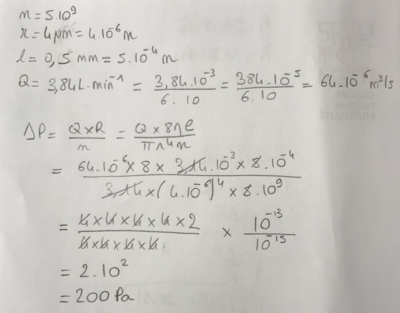 n = 5.10⁹
r = 4μm = 4.10⁻⁶ m
l = 0,5 mm = 5.10⁻⁴ m
Q = 3,84 L.min⁻¹ = 3,84.10⁻³ / 6.10 = 384.10⁻⁵ / 6.10 = 64.10⁻⁶ m³/s
ΔP = Q×R / n = Q × 8ηl / πr⁴n
= 64.10⁻⁶ × 8 × 3,14.10⁻³ × 5.10⁻⁴ / 3,14 × (4.10⁻⁶)⁴ × 5.10⁹
= 4×4×4×4×2 / 4×4×4×4 × 10⁻¹³ / 10⁻¹⁵
= 2.10²
= 200 Pa